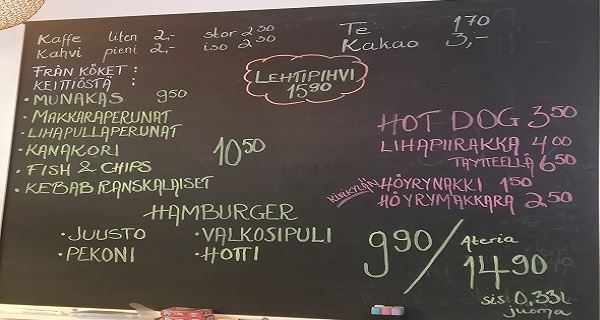 Kaffe liten 2,- stor 2 50
Kahvi pieni 2,- iso 2 50
Te 1 70
Kakao 3,-
FRÅN KÖKET :
KEITTIÖSTÄ :
LEHTIPIHVI
15 90
• MUNAKAS 9 50
• MAKKARAPERUNAT
• LIHAPULLAPERUNAT
• KANAKORI
• FISH & CHIPS
• KEBAB RANSKALAISET
10 50
HOT DOG 3 50
LIHAPIIRAKKA 4 00
TÄYTTEELLÄ 6 50
KIRKYLÄN HÖYRYNAKKI 1 50
HÖYRYMAKKARA 2 50
HAMBURGER
• JUUSTO • VALKOSIPULI
• PEKONI • HOTTI
9 90 / Ateria 14 90
sis 0,33l
juoma